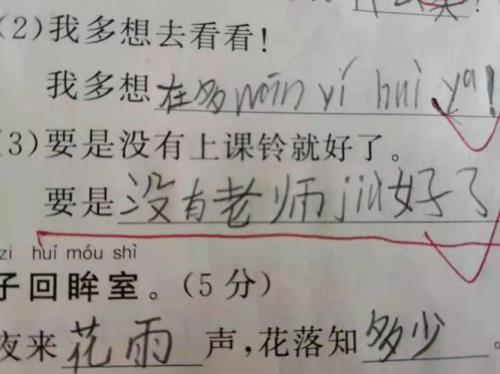 (2)我多想去看看!
我多想在多wán yí huì ya!
(3)要是没有上课铃就好了。
要是没有老师jiù好了
zi huí móu shì
子回眸室。(5分)
夜来花雨声,花落知多少。